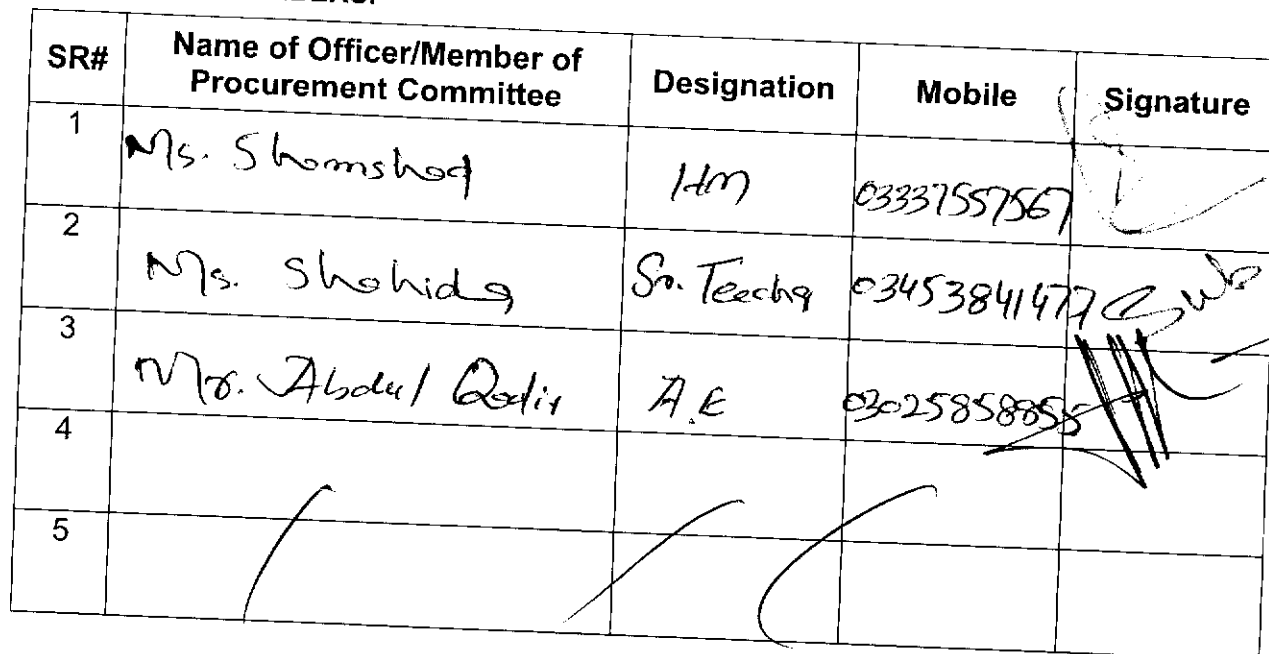 SR# Name of Officer/Member of Procurement Committee Designation Mobile Signature
1 Ms. Shamshad HM 03337557567
2 Ms. Shahida Sr. Teacher 03453841477
3 Mr. Abdul Qadir A.E 03025858855
4
5